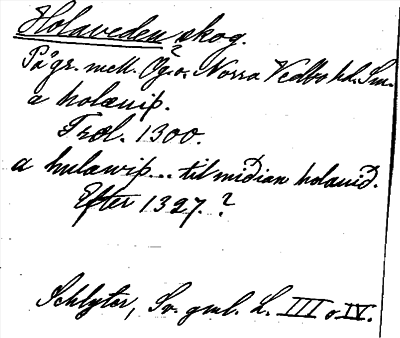 Holaveden skog.
På gr. mell. Ög. o. Norra Vedbo hd. Sm.
a holæuiþ.
Trol. 1300.
a hulawiþ... til miðian holauið.
Efter 1327. ?
Schlyter, Sv. gml. L. III o IV.